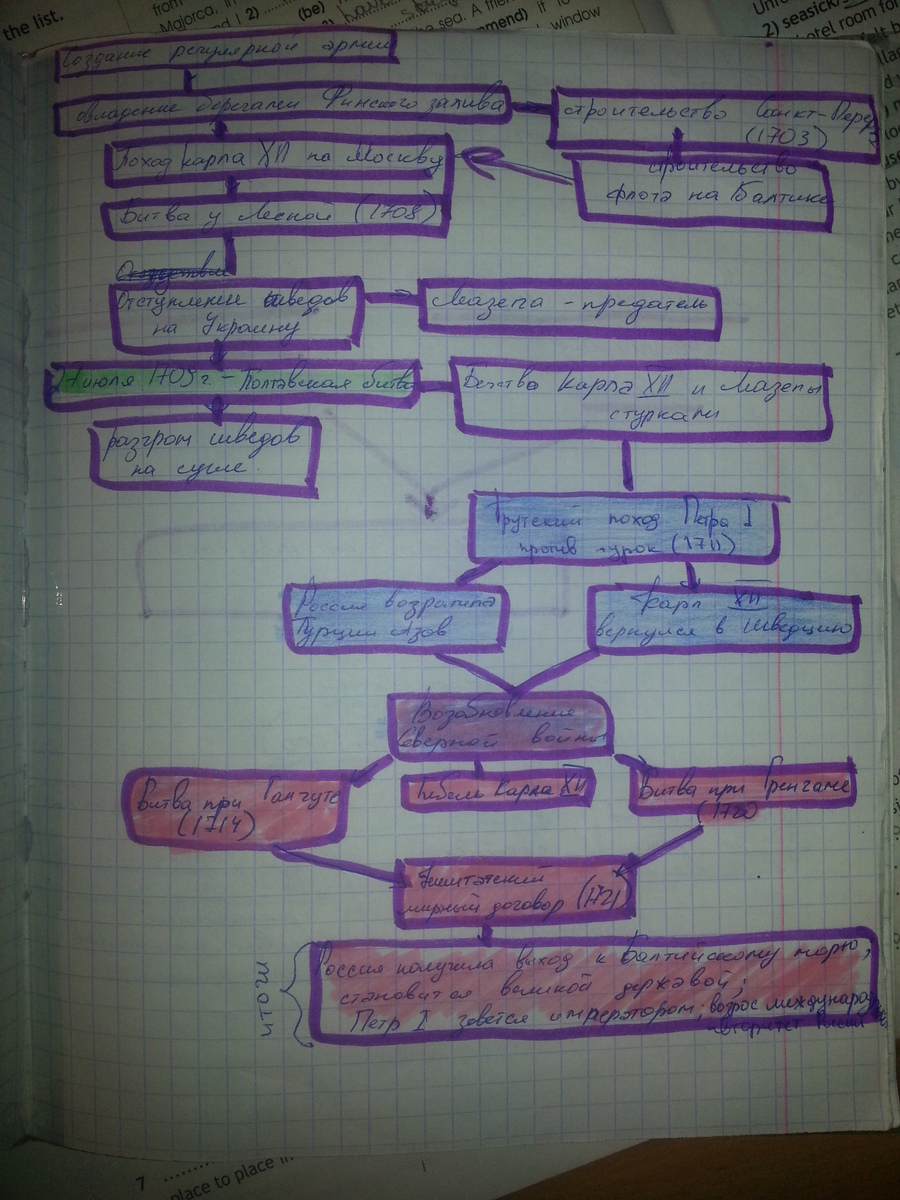 the list.
from
Majorca. In
2) ........ (be)
the sea. A frie
mmend) it to
window
2) seasick
hotel room for
Создание регулярной армии
овладение берегами Финского залива
строительство Санкт-Петер
(1703)
Поход Карла XII на Москву
строительство
флота на Балтике
Битва у Лесной (1708)
Отступление шведов
на Украину
Мазепа - предатель
27 июля 1709 г. - Полтавская битва
Бегства Карла XII и Мазепы
с турками
разгром шведов
на суше.
Прутский поход Петра I
против турок (1711)
Россия возратила
Турции Азов
Карл XII
вернулся в Швецию
Возобновление
Северной войны
Битва при Гангуте
(1714)
Гибель Карла XII
Битва при Гренгаме
(1720
Ништатский
мирный договор (1721)
итоги
Россия получила выход к Балтийскому морю;
становится великой державой;
Петр I зовется императором; возрос международ
авторитет России
7 ........
place to place in